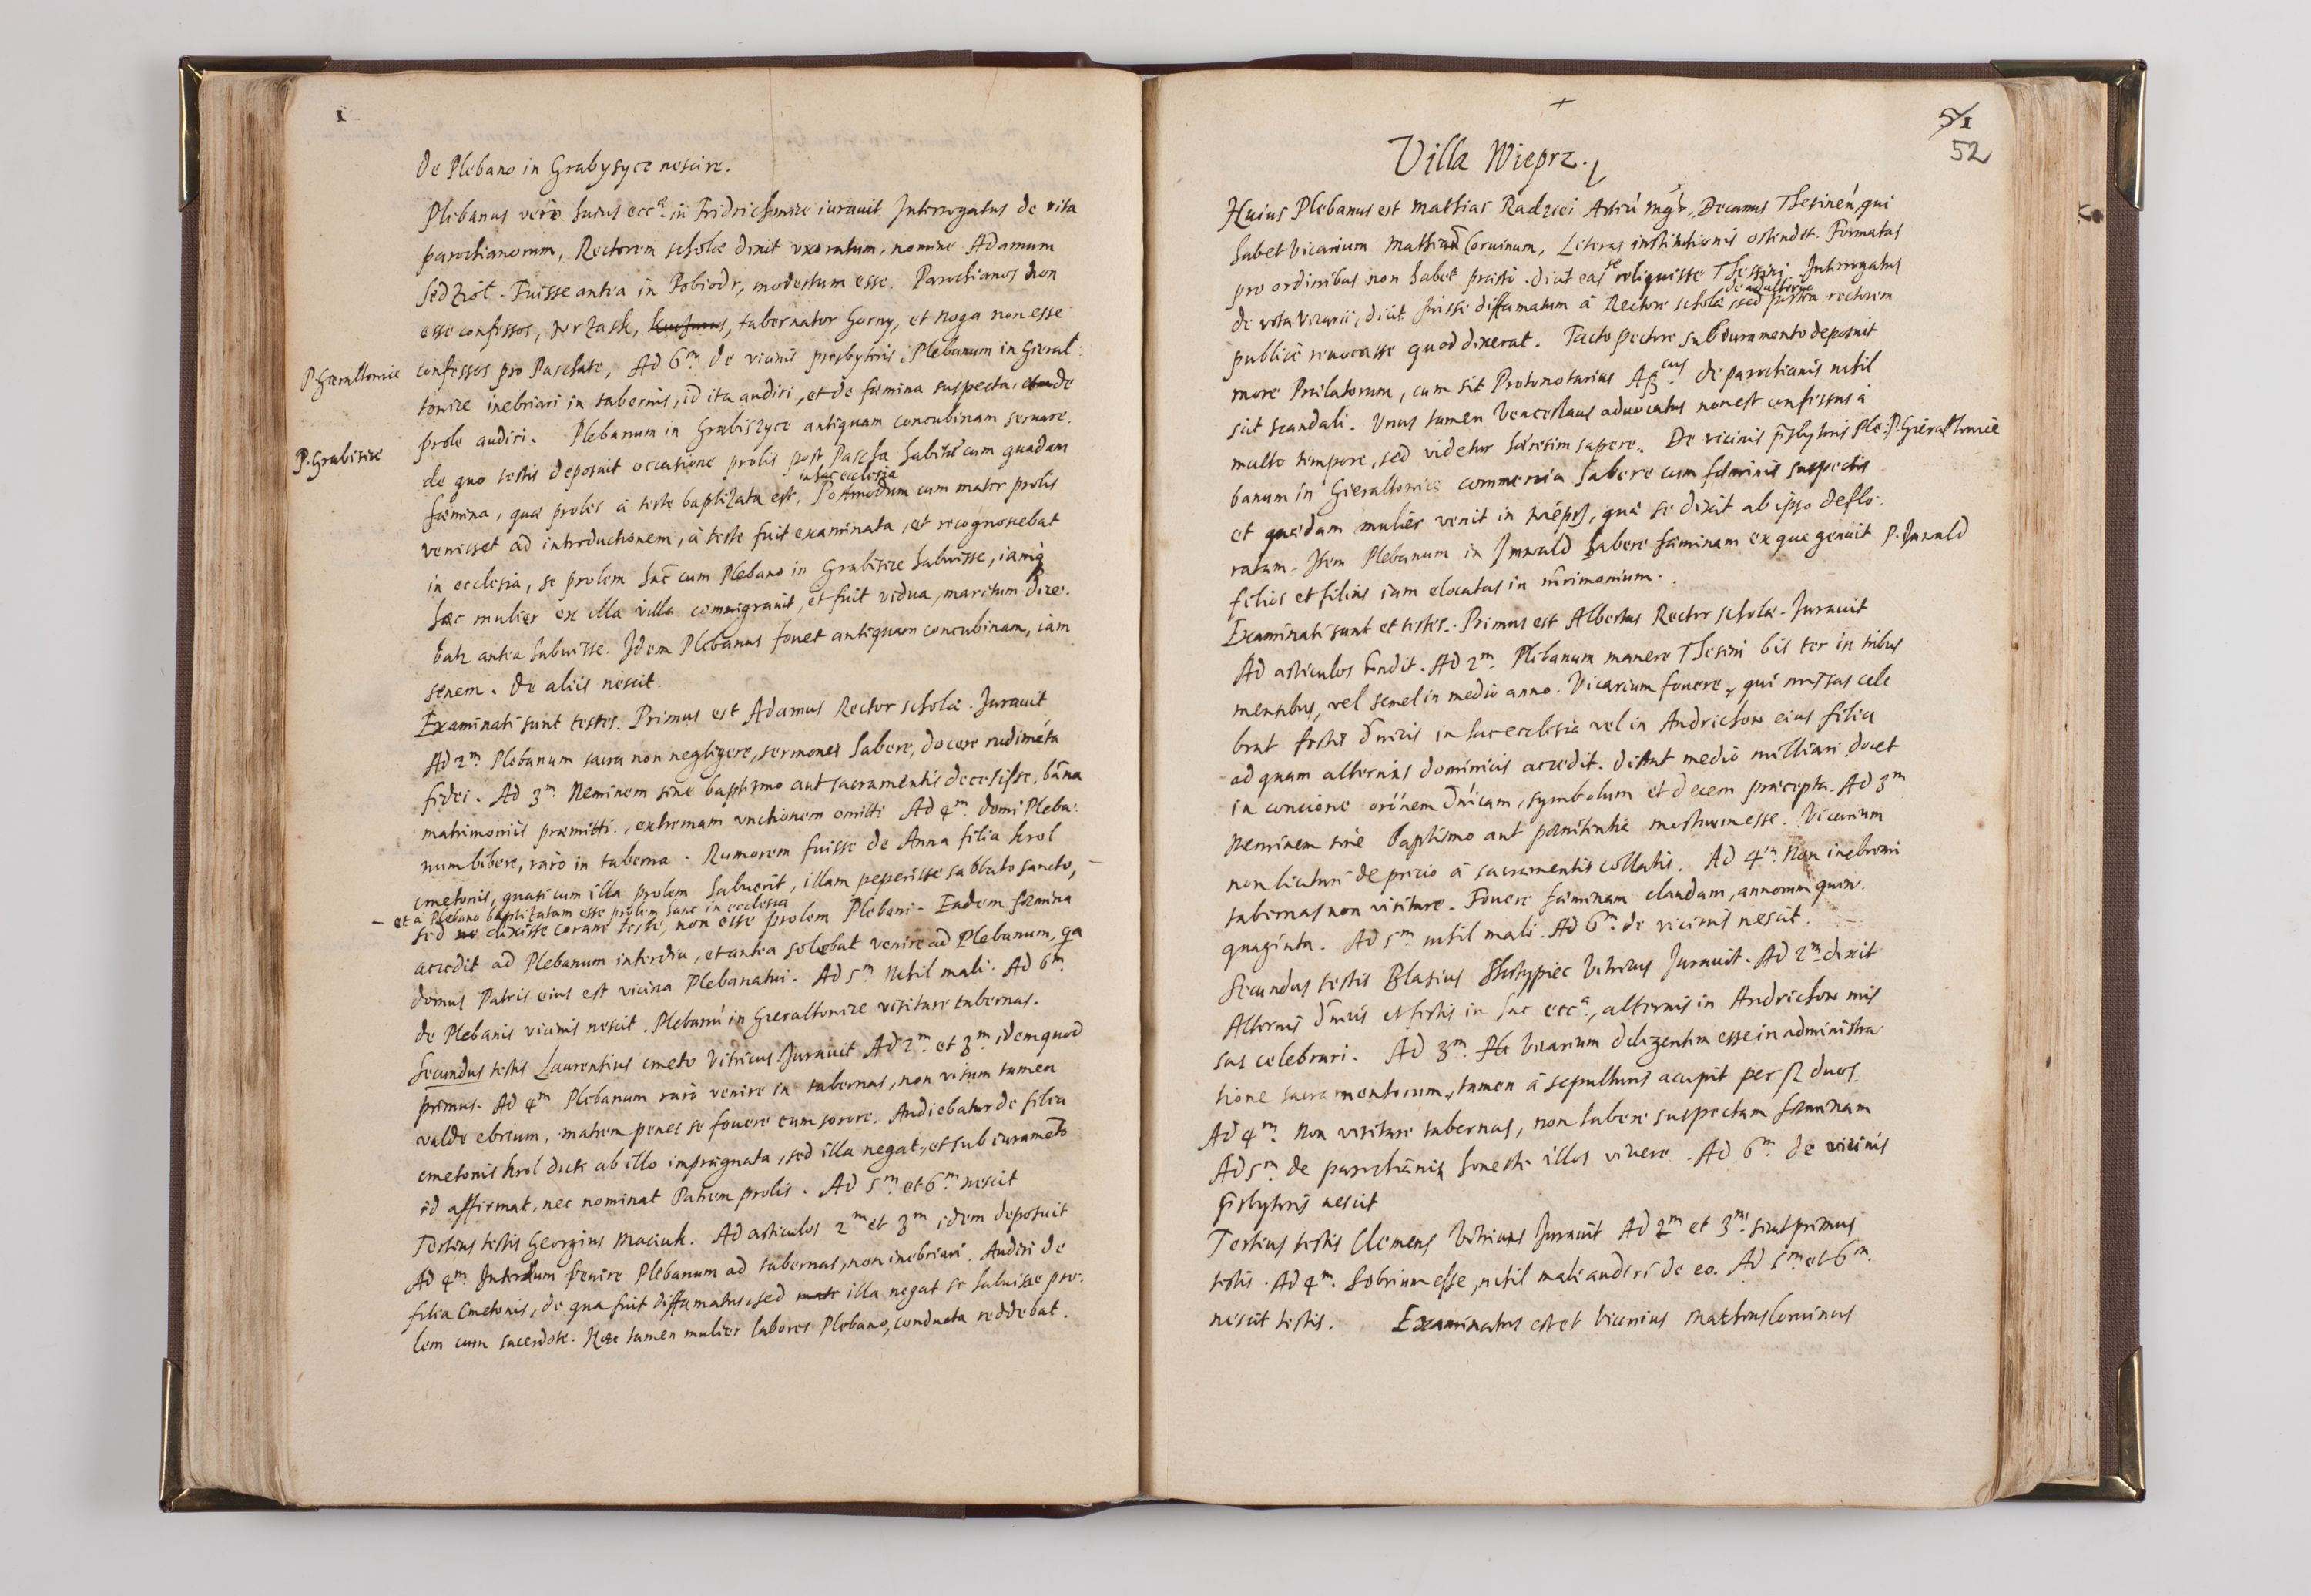 1
de Plebano in Grabyszyce nescire.
Plebanus vero huius ecc.ᵃ in Fridrichowice iurauit. Interrogatus de vita
parochianorum, Rectorem scholæ dixit uxoratum, nomine Adamum
Fuisse antea in Pobiodr, modestum esse. Parochianos non
esse confessos, tabernator Gorny, et Noga non esse
P. Gieraltowice
confessos pro Paschate, Ad 6.ᵐ de vicinis presbyteris, Plebanum in Gieral:
towice inebriari in tabernis, id ita audiri, et de fæmina suspecta, et de
prole audiri. Plebanum in Grabiszyce antiquam concubinam seruare.
P. Grabisice
de quo testis deposuit occasione prolis post Pascha habitæ cum quadam
in hac ecclesia
fæmina, quæ proles à teste baptizata est, Postmodum cum mater prolis
venisset ad introductionem, à teste fuit examinata, et recognoscebat
in ecclesia, se prolem hãc cum Plebano in Grabisice habuisse, iamq
hæc mulier ex illa villa commigrauit, et fuit vidua, maritum dice:
bat antea habuisse. Idem Plebanus fouet antiquam concubinam, iam
senem. De aliis nescit.
Examinati sunt testes. Primus est Adamus Rector scholæ. Iurauit
Ad 2.ᵐ Plebanum sacra non negligere, sermones habere, docere rudimẽta
fidei. Ad 3.ᵐ Neminem sine baptismo aut sacramentis decessisse. bãna
matrimoniis præmitti, extremam unctionem omitti Ad 4.ᵐ domi Pleba:
num bibere, rarò in taberna. Rumorem fuisse de Anna filia Krol
cmetonis, quasi cum illa prolem habuerit, illam peperisse sabbato sancto,
– et à Plebano baptizatam esse prolem hanc in ecclesia
sed ne dixisse coram teste, non esse prolem Plebani. Eadem fæmina
accedit ad Plebanum interdiu, et antea solebat venire ad Plebanum, qa
domus Patris eius est vicina Plebanatui. Ad 5.ᵐ Nihil mali. Ad 6.ᵐ
de Plebanis vicinis nescit. Plebanũ in Gieraltowice visitare tabernas.
Secundus testis Laurentius cmeto Vitricus. Iurauit Ad 2.ᵐ et 3.ᵐ idem quod
primus. Ad 4.ᵐ Plebanum rarò venire in tabernas, non visum tamen
valde ebrium, matrem penes se fouere cum sorore. Audiebatur de filia
cmetonis Krol dicti ab illo imprægnata, sed illa negat, et sub iuramẽto
id affirmat, nec nominat Patrem prolis. Ad 5.ᵐ et 6.ᵐ nescit
Tertius testis Georgius Maciuk. Ad articulos 2.ᵐ et 3.ᵐ idem deposuit
Ad 4.ᵐ Interdum venire Plebanum ad tabernas, non inebriari. Audiri de
filia Cmetonis, de qua fuit diffamatus, sed illa negat se habuisse pro:
lem cum sacerdote. Hæc tamen mulier labores Plebano, conducta reddebat.
+
51
52
Villa Wieprz.
Huius Plebanus est Mathias Radzici Artiũ Mgr, Decanus Thesinen, qui
habet vicarium Mathiam Coruinum, Literas institutionis ostendet. Formatas
pro ordinibus non habet præsto. dicit eas se reliquisse Thessini. Interrogatus
de adulterio
de vita Vicarii, dicit fuisse diffamatum à Rectore scholæ, sed postea rectorem
publicè reuocasse quod dixerat. Tacto pectore sub iuramento deposuit
more Prælatorum, cum sit Protonotarius Ap.cus de parochianis nihil
scit scandali. Vnus tamen Venceslaus aduocatus non est confessus à
multo tempore, sed videtur hæresim sapere. De vicinis p̃sbyteris Ple:
P. Gieraltowice
banum in Gieraltowice commercia habere cum fæminis suspectis
et quædam mulier venit in Wieprz, quæ se dixit ab ipso deflo:
ratam. Item Plebanum in Inwald habere fæminam ex qua genuit
P. Inwald
filios et filias iam elocatas in m̃rimonium.
Examinati sunt et testes. Primus est Albertus Rector scholæ. Iurauit
Ad articulos Ad 2.ᵐ Plebanum manere Thesini bis ter in tribus
mensibus, vel semel in medio anno. Vicarium fouere, qui missas cele
brat festis d̃nicis in hac ecclesia vel in Andrichow eius filia
ad quam alternis dominicis accedit. distat medio milliari docet
in concione or̃onem d̃nicam, symbolum et decem præcepta. Ad 3.ᵐ
Neminem sine baptismo aut pænitentia mortuum esse. Vicarium
non licitari de precio à sacramentis collatis. Ad 4.ᵐ Non inebriari
tabernas non visitare. Fouere fæminam claudam, annorum quin:
quaginta. Ad 5.ᵐ nihil mali. Ad 6.ᵐ de vicinis nescit.
Secundus testis Blasius Vitricus Iurauit. Ad 2.ᵐ dixit
Alternis d̃nicis et festis in hac ecc.ᵃ, alternis in Andrichow mis
sas celebrari. Ad 3.ᵐ Vicarium diligentem esse in administra
tione sacramentorum, tamen à sepulturis accipit per duos.
Ad 4.ᵐ Non visitare tabernas, non habere suspectam fæminam
Ad 5.ᵐ de parochianis honestè illos viuere. Ad 6.ᵐ de vicinis
p̃sbyteris nescit
Tertius testis Clemens Vitricus Iurauit Ad 2.ᵐ et 3.ᵐ sicut primus
testis. Ad 4.ᵐ Sobrium esse, nihil mali audiri de eo. Ad 5.ᵐ et 6.ᵐ
nescit testis. Examinatus est et Vicarius Mathias Coruinus